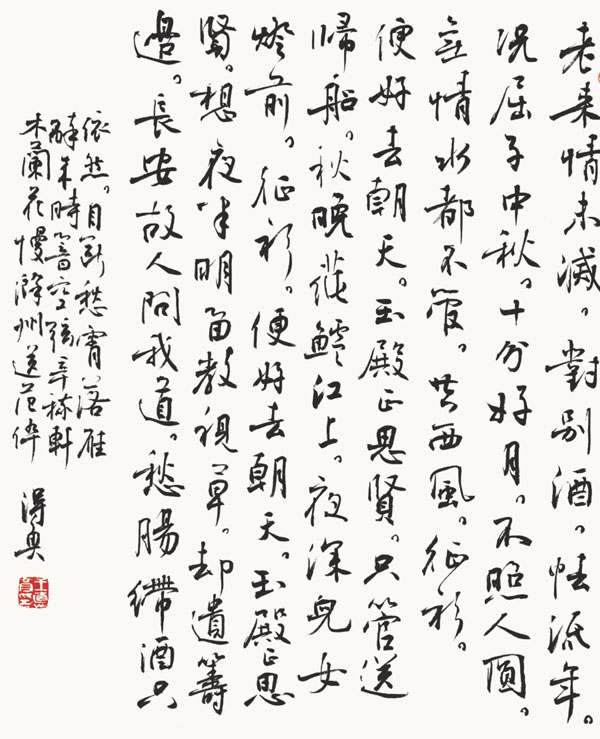 老来情未减。對別酒。怯流年。
况屈子中秋。十分好月。不照人圓。
無情水都不管。共西風。征衫。
便好去朝天。玉殿正思賢。只管送
歸船。秋晚蒓鱸江上。夜深兒女
燈前。征衫。便好去朝天。玉殿正思
賢。想夜半明留教視草。却遣籌
邊。長安故人問我道。愁腸殢酒只
依然。目斷愁霄落雁
醉来時響空弦辛稼軒
木蘭花慢滁州送范倅